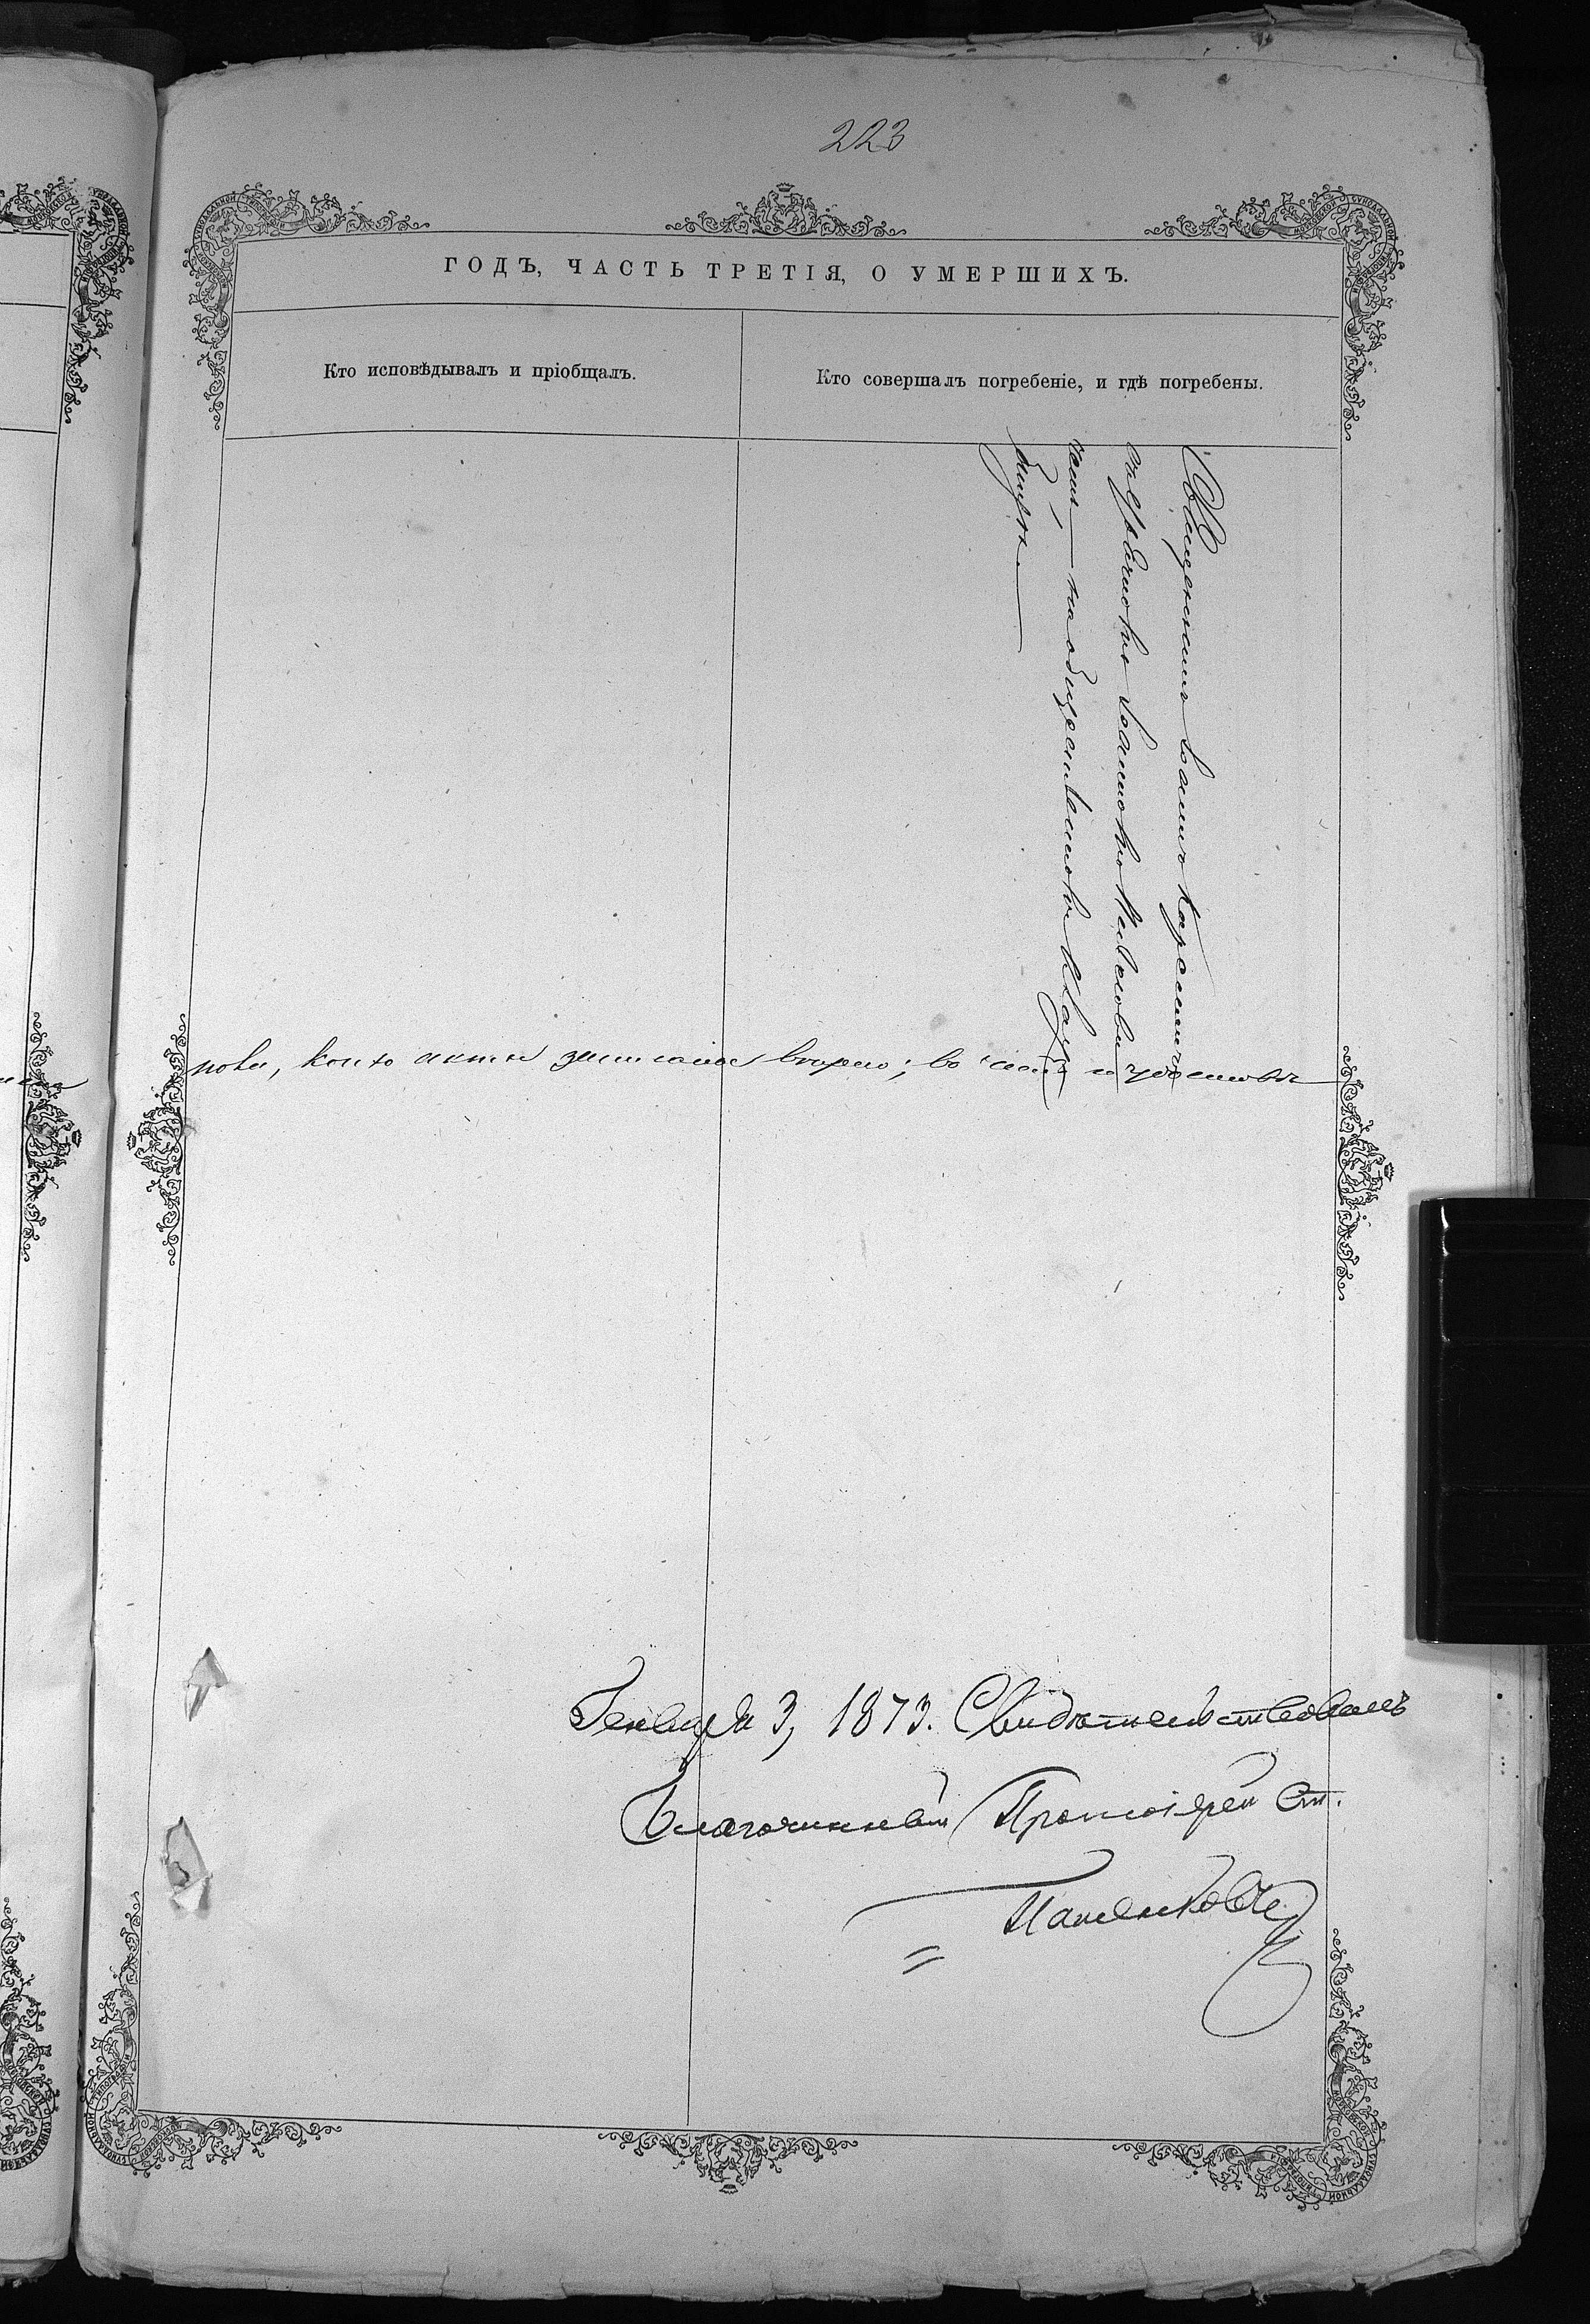 223
ГОДЪ, ЧАСТЬ ТРЕТІЯ, О УМЕРШИХЪ.
Кто исповѣдывалъ и пріобщалъ.
Кто совершалъ погребеніе, и гдѣ погребены.
Священникъ Іоаннъ
съ Іоанномъ
на общественномъ клад
бищѣ.
акты записаны вѣрно; въ чемъ и
Генваря 3, 1873. Свидѣтельствовалъ
Благочинный Протоіерей Ст.